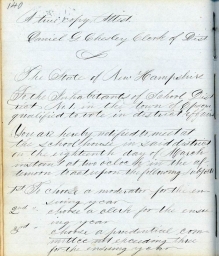 140
A true copy Attest
Daniel G Chesley Clerk of Dist
The State of New Hampshire
To the Inhabitants of School Dis
trict No 1 in the town of
qualified to vote in district affairs
You are hereby notified to meet at
the school house in said district
on the eighteenth day of March
instant at two o'clock in the af
ternoon to act upon the following subjects
1st To choose a moderator for the en
suing year
2nd " choose a clerk for the ensu
ing year
3rd " choose a prudential com
mittee not exceeding three
for the ensuing year